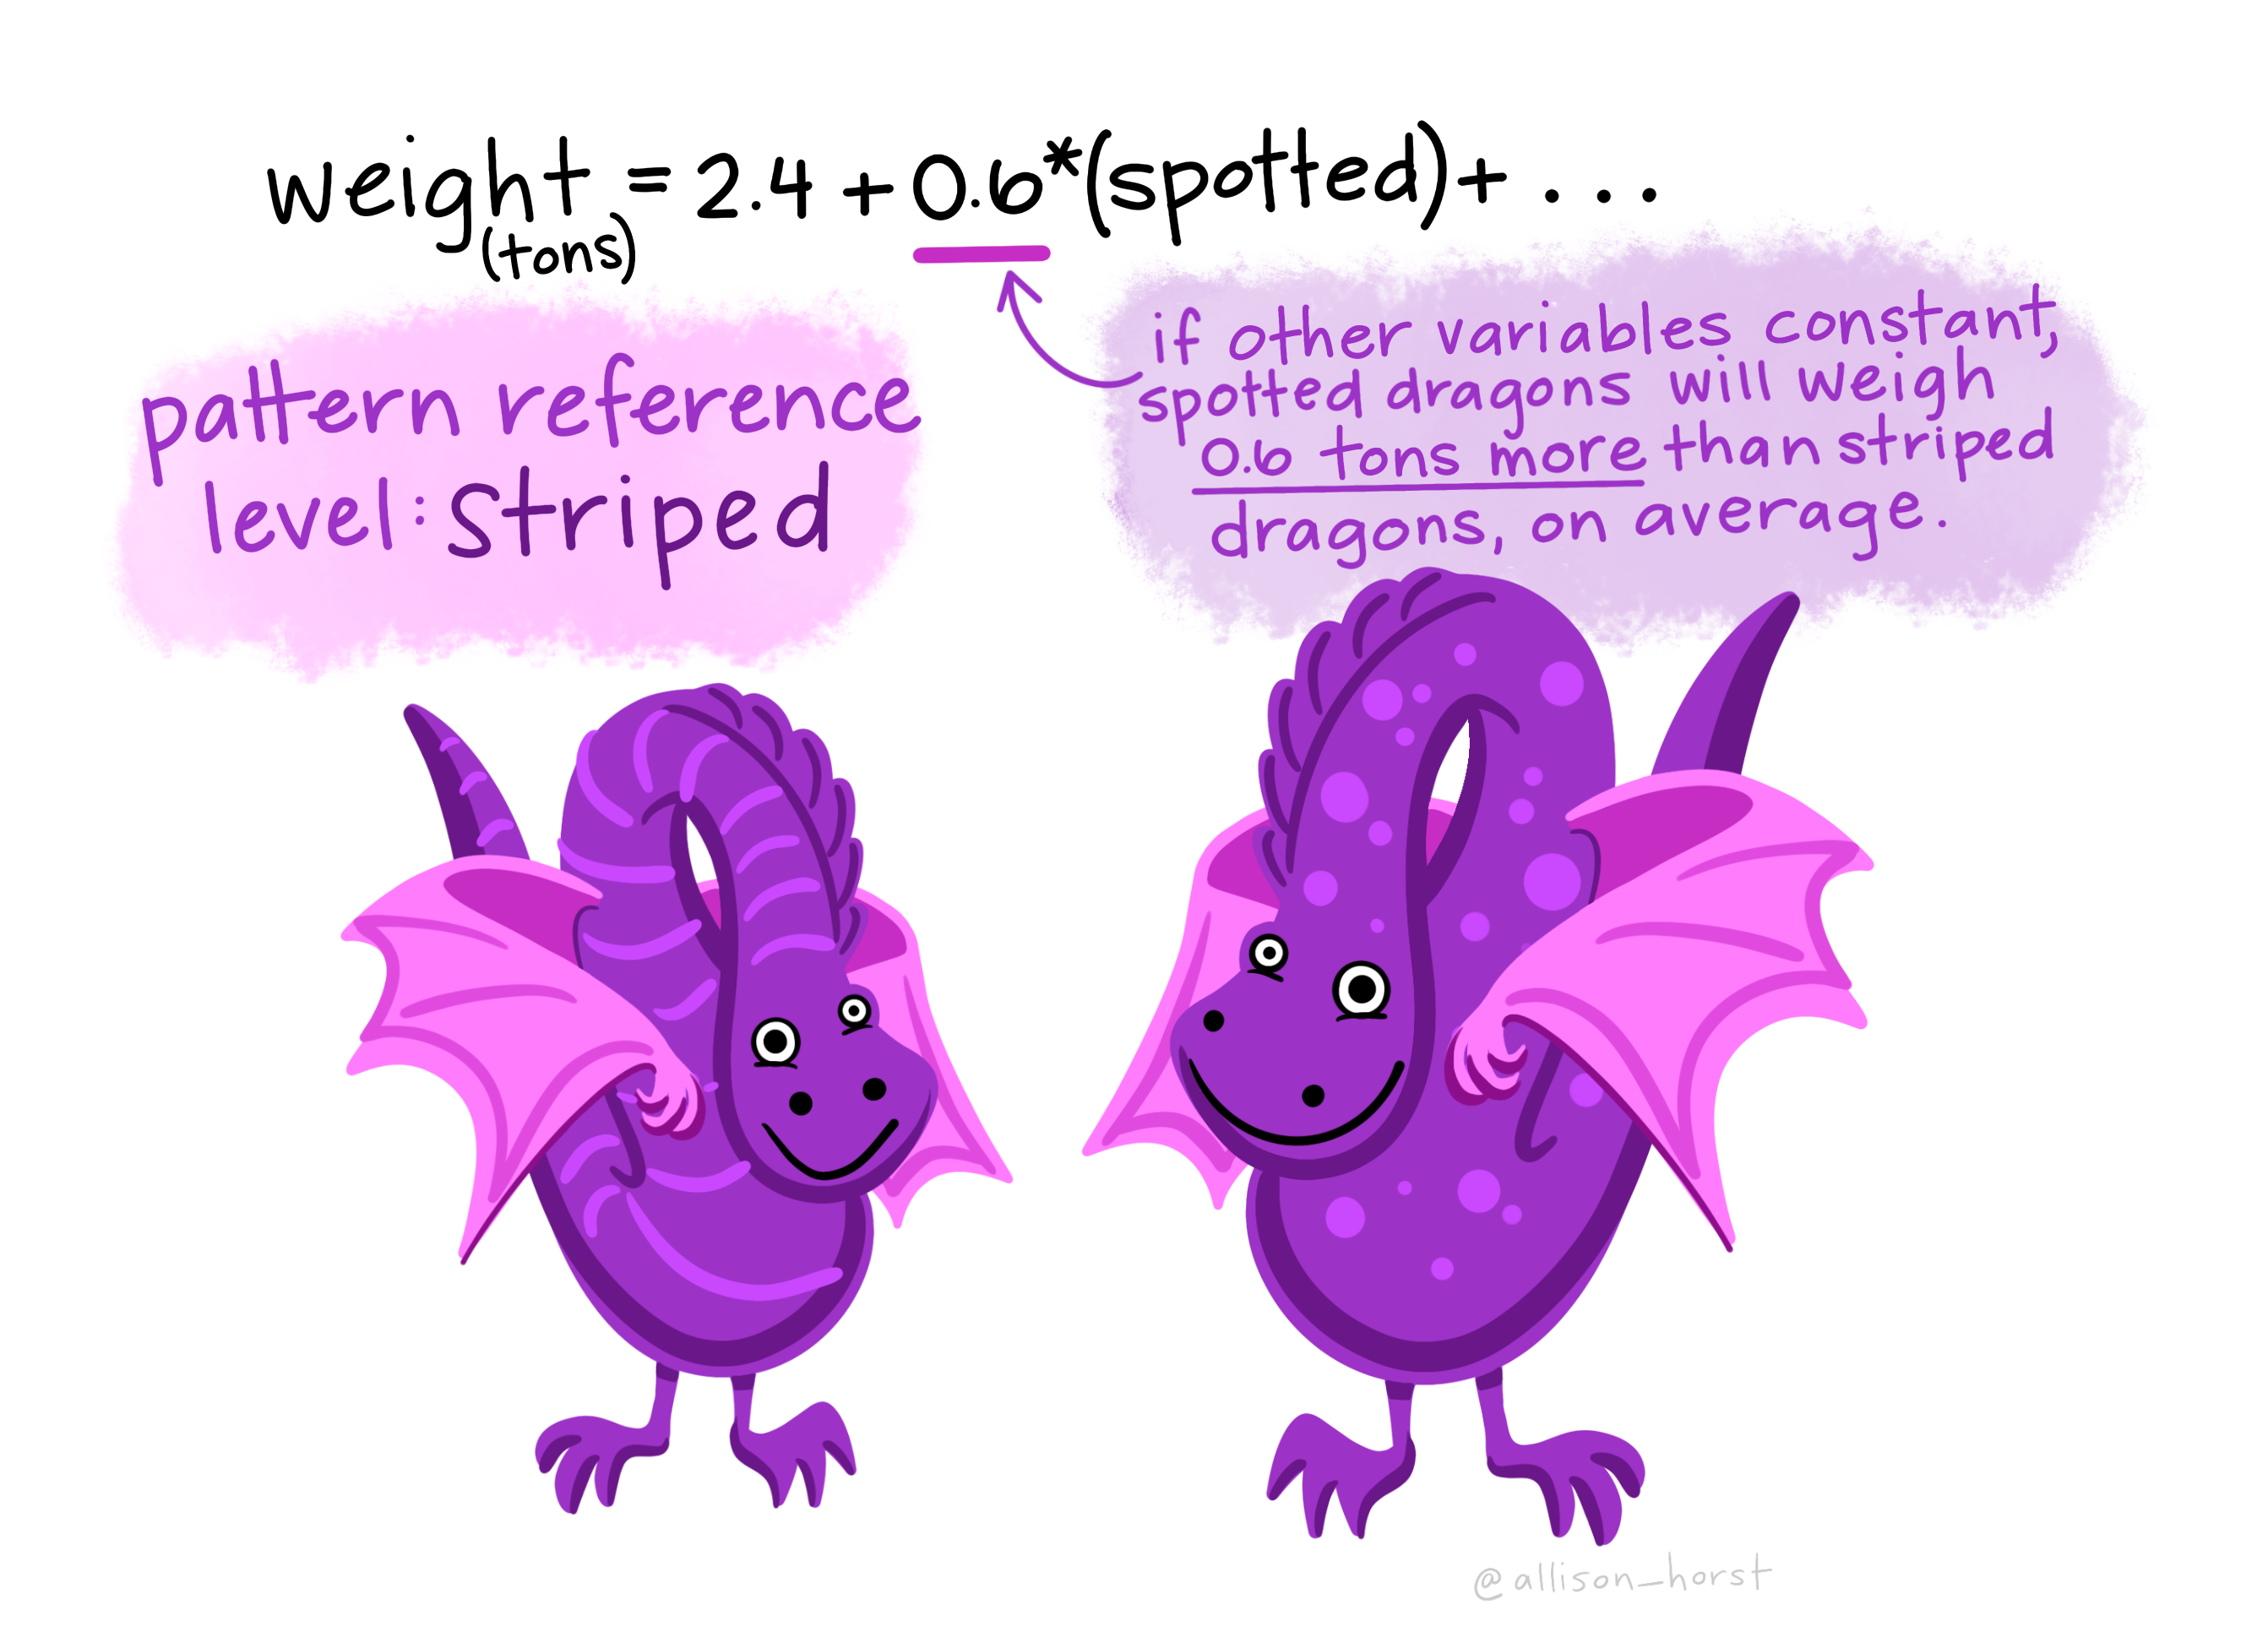 weight = 2.4 + 0.6*(spotted) + ...
(tons)
pattern reference
level: striped
if other variables constant,
spotted dragons will weigh
0.6 tons more than striped
dragons, on average.
@allison_horst